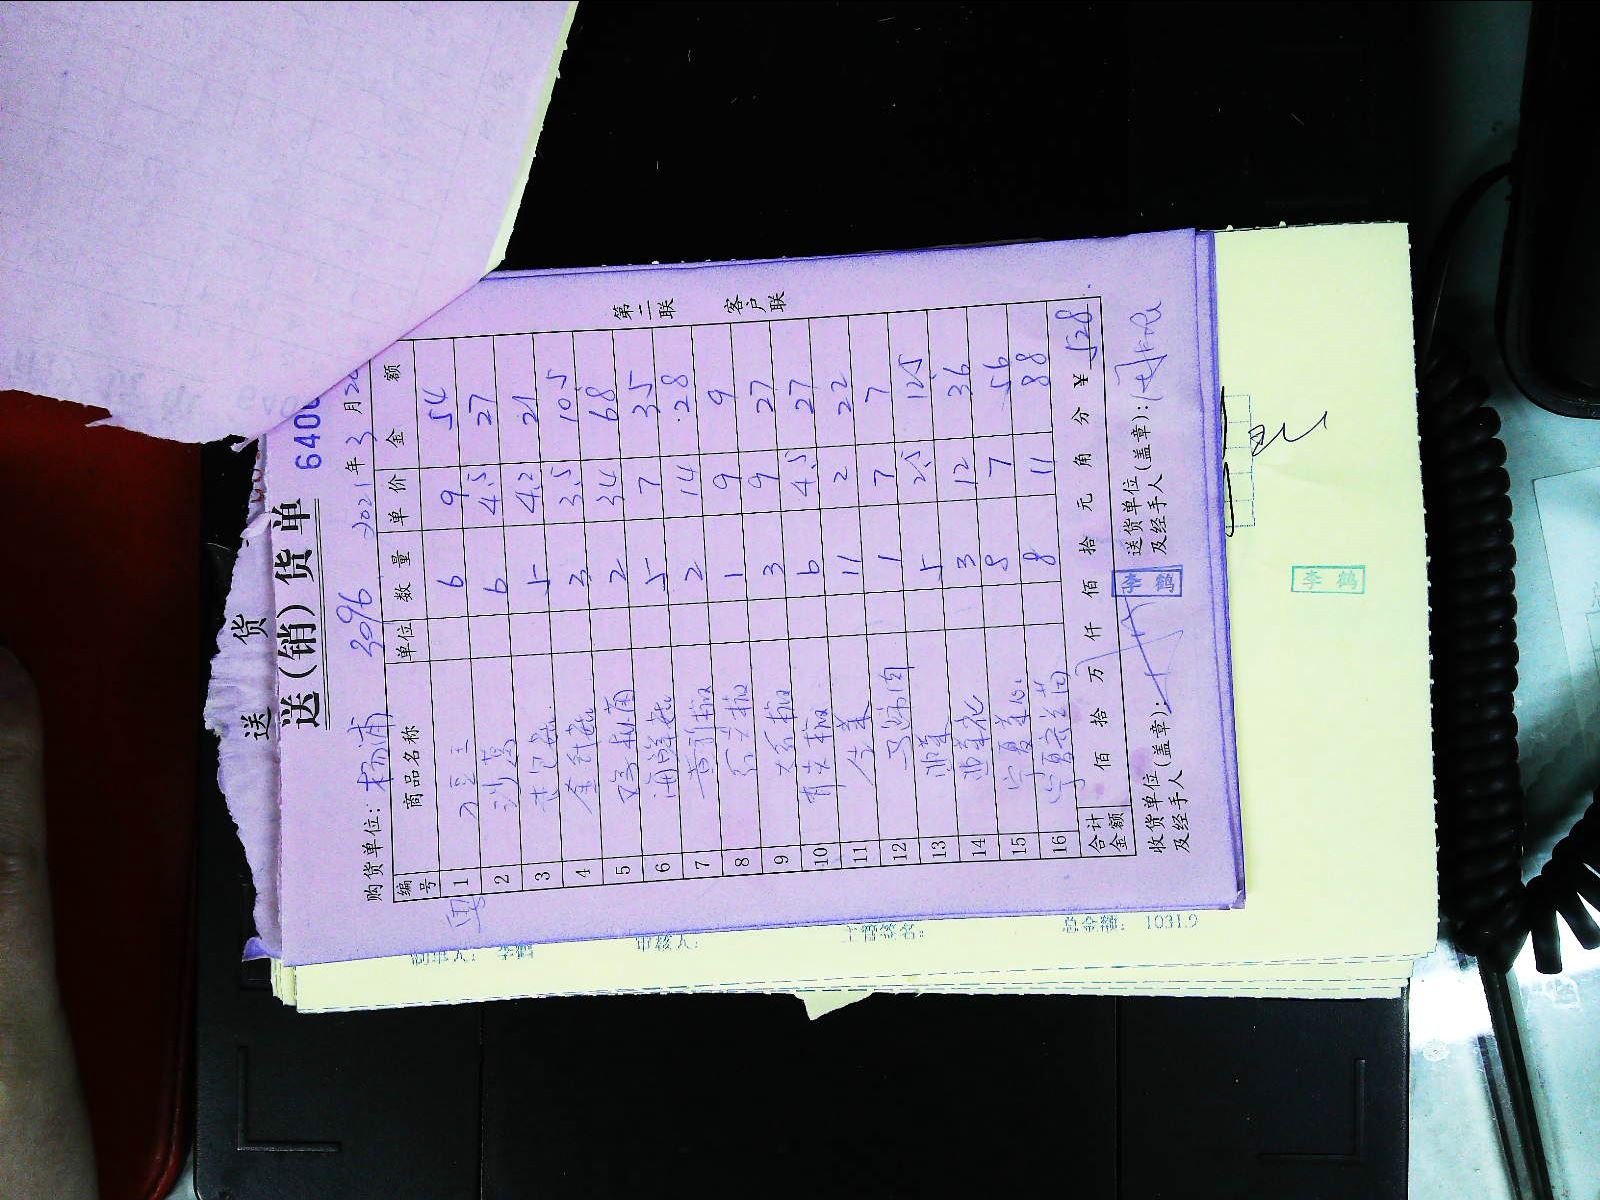 送 货
送(销)货单 640
购货单位: 杨浦 3096 2021年3月2
第二联 客户联
编号 商品名称 单位 数量 单价 金额
1 6 9 54
2 沙葛 6 4.5 27
3 杏包菇 5 4.2 21
4 金针菇 3 3.5 10.5
5 2 34 68
6 海鲜菇 5 7 35
7 黄彩椒 2 14 28
8 1 9 9
9 3 9 27
10 青尖椒 6 4.5 27
11 生菜 11 2 22
12 1 7 7
13 5 2.5 12.5
14 3 12 36
15 宁夏菜心 8 7 56
16 宁夏芥兰苗 8 11 88
合计金额 佰 拾 万 仟 佰 拾 元 角 分 ¥ 528
收货单位及经手人(盖章): 李鹤 送货单位及经手人(盖章):
李鹤
制单人: 李鹤 审核人: 主管签名: 总金额: 1031.9